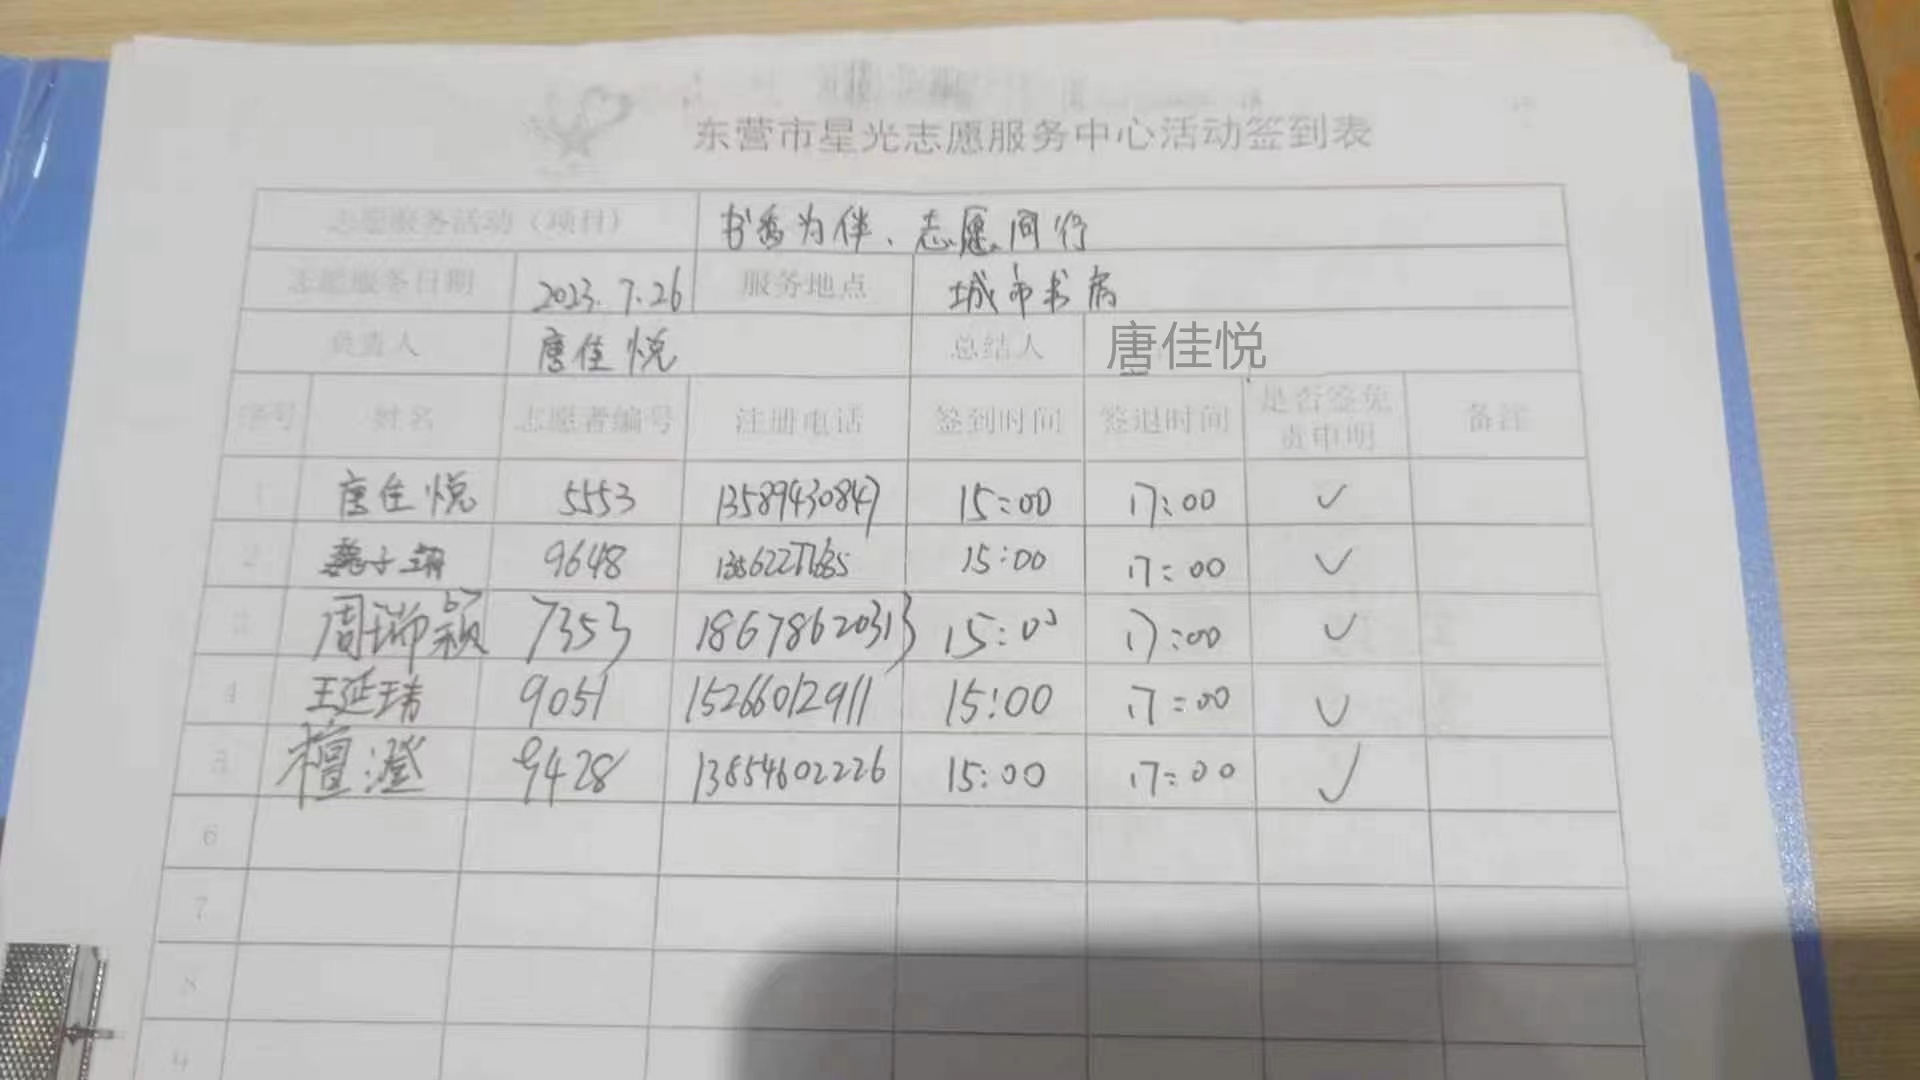 东营市星光志愿服务中心活动签到表
志愿服务活动（项目） 书香为伴、志愿同行
志愿服务日期 2023.7.26 服务地点 城市书房
负责人 唐佳悦 总结人 唐佳悦
序号 姓名 志愿者编号 注册电话 签到时间 签退时间 是否签免责申明 备注
1 唐佳悦 5553 13589430847 15:00 17:00 ✓
2 9648 15:00 17:00 ✓
3 周瑞颖 7353 18678620313 15:00 17:00 ✓
4 王延玮 9051 15266012911 15:00 17:00 ✓
5 檀澄 9428 13854602226 15:00 17:00 ✓
6
7
8
9